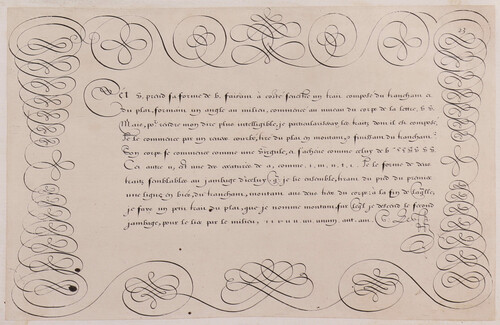 Cet v, prend sa forme de b, faisant à costé senestre un trait composé du tranchant et
du plat, formant un angle au milieu, commence au niveau du corps de la lettre, b v
Mais, po.r rendre mon dire plus intelligible, je particulariseray les traitz dont il est composé,
Je le commence par un traict courbé, tiré du plat en montant, et finissant du tranchant.
Son corps se commence comme une virgule, et s'acheve comme celuy de b
Cet autre u, est une des creatrice de a, comme, i, m, n, t, i. Je le forme de deux
traitz semblables au jambage d'iceluy je lie ensemble, tirant du pied du premier
une ligne en biés, du tranchant, montant aux deux tiers du corps: à la fin de laq.lle,
je faxe un petit trait du plat, que je nomme montant, sur leq.l je descend le second
jambage, pour le lié par le milieu,